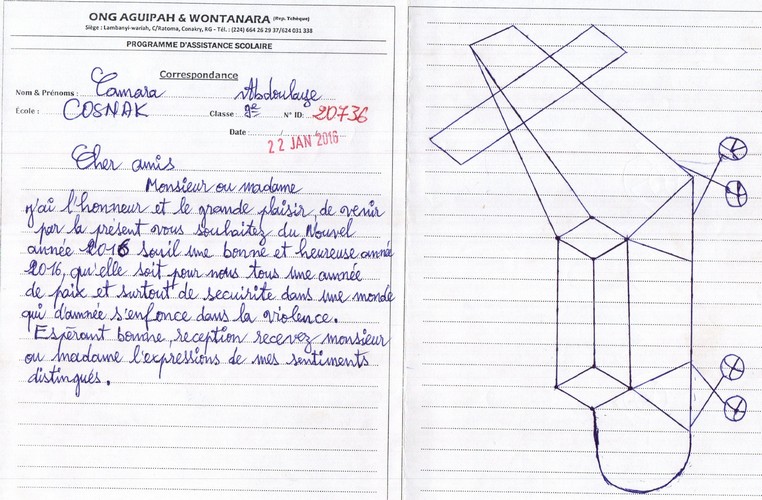 ONG AGUIPAH & WONTANARA (Rep. Tchèque)
Siège : Lambanyi-wariah, C/Ratoma, Conakry, RG - Tél. : (224) 664 26 29 37/624 031 338
PROGRAMME D'ASSISTANCE SCOLAIRE
Correspondance
Nom & Prénoms : Camara Abdoulaye
École : COSNAK Classe : 9e N° ID: 20736
Date : / /
22 JAN 2016
Cher amis
Monsieur ou madame
j'ai l'honneur et le grande plaisir de venir
par la présent vous souhaitez du Nouvel
année 2016 souil une bonne et heureuse année
2016, qu'elle soit pour nous tous une année
de paix et surtout de secuirite dans une monde
qui d'amnée s'enfonce dans la violence.
Espérant bonne reception recevez monsieur
ou madame l'expressions de mes sentiments
distingués.